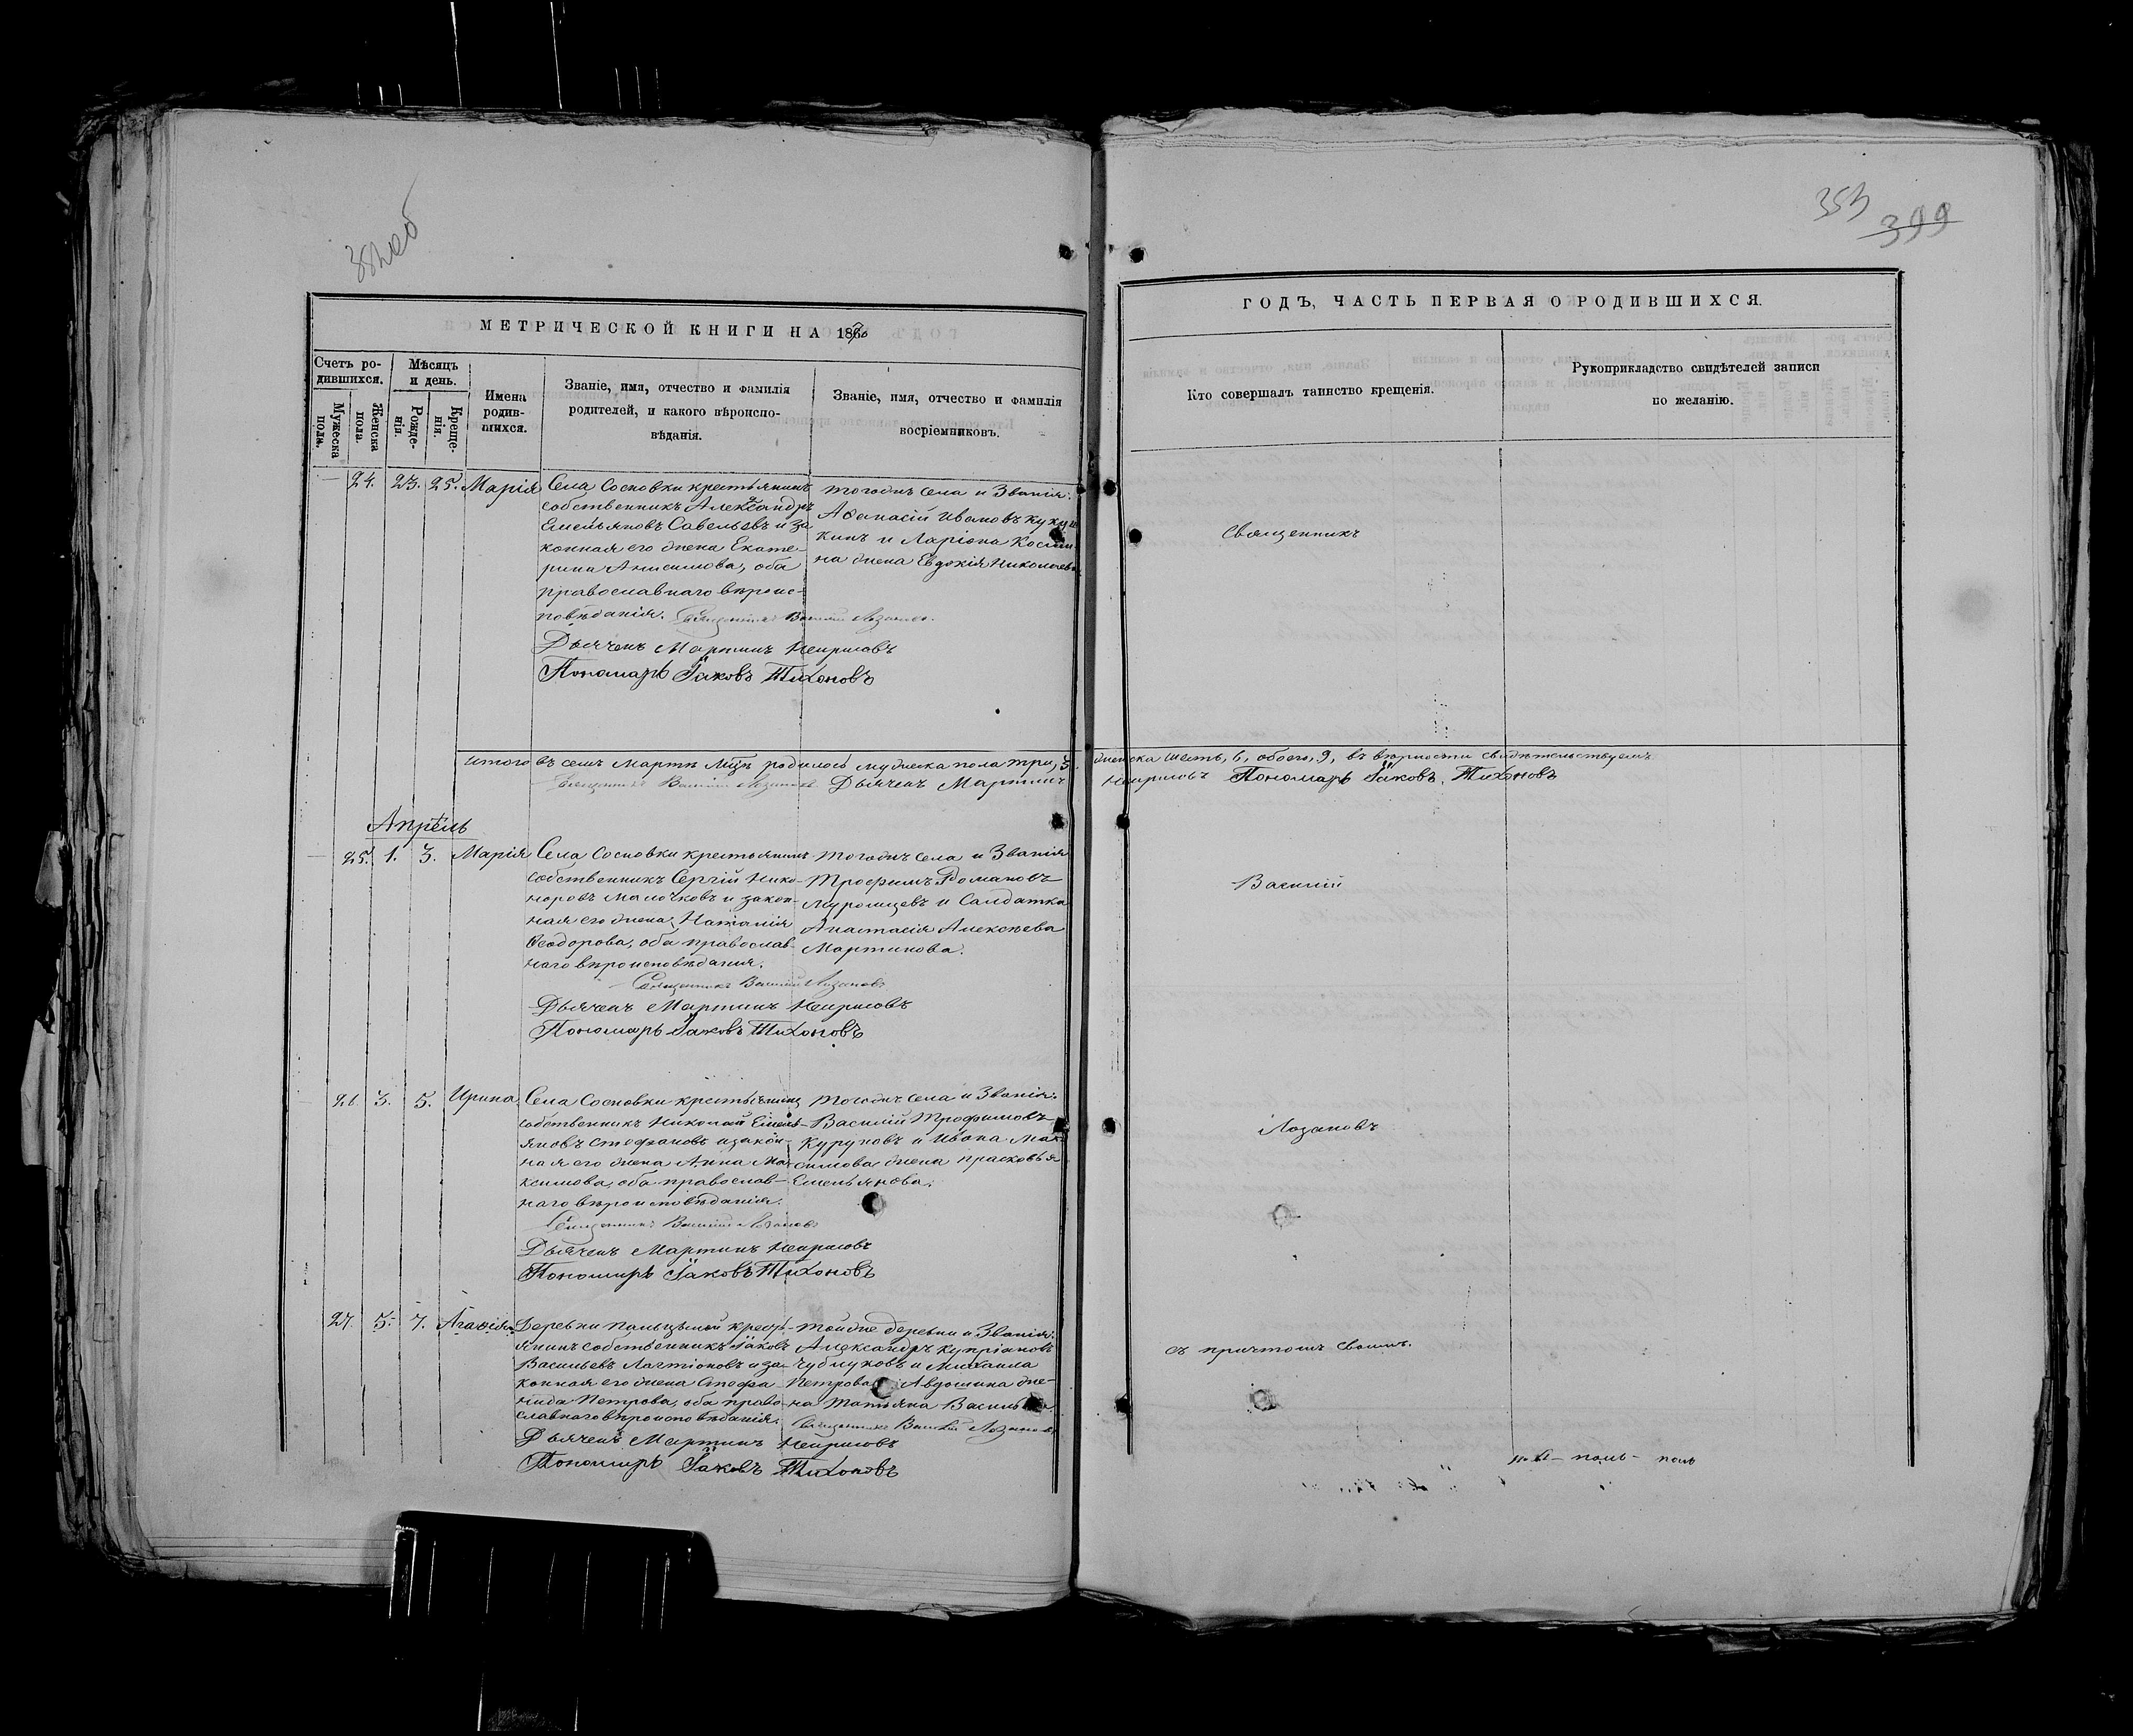 352об
353
399
МЕТРИЧЕСКОЙ КНИГИ НА 1870
ГОДЪ, ЧАСТЬ ПЕРВАЯ О РОДИВШИХСЯ.
Счетъ ро-
дившихся.
Мужеска
пола.
Женска
пола.
Мѣсяцъ
и день.
Рожде-
нія.
Креще-
нія.
Имена
родив-
шихся.
Званіе, имя, отчество и фамилія
родителей, и какого вѣроиспо-
вѣданія.
Званіе, имя, отчество и фамилія
воспріемниковъ.
Кто совершалъ таинство крещенія.
Рукоприкладство свидѣтелей записи
по желанію.
24. 23. 25. Марія
Села Сосновки крестьянинъ
собственникъ Александръ
Емельяновъ Савельевъ и за
конная его жена Екате-
рина Анисимова, оба
православнаго вѣроис-
повѣданія.
Священникъ Василій Лозановъ
Дьячекъ Мартинъ
Пономарь Іаковъ Тихоновъ
тогожъ села и званія:
Аѳанасій Ивановъ Куку
кинъ и Ларіона
на жена Евдокія Николаева
Священникъ
Итого въ семъ Мартѣ Мцѣ родилось мужеска пола три, 3. женска шесть, 6, обоего, 9, въ вѣрности свидѣтельствуемъ
Священникъ Василій Лозановъ Дьячекъ Мартинъ Пономарь Іаковъ Тихоновъ
Апрѣль
25. 1. 3. Марія
Села Сосновки крестьянинъ
собственникъ Сергій Нико-
норовъ Малочковъ и закон-
ная его жена Наталія
Ѳеодорова, оба православ-
наго вѣроисповѣданія.
Священникъ Василій Лозановъ
Дьячекъ Мартинъ
Пономарь Іаковъ Тихоновъ
тогожъ села и званія
Трофимъ Романовъ
Муромцевъ и Салдатка
Анастасія Алексѣева
Мартинова.
Василій
26. 3. 5. Ирина
Села Сосновки крестьянинъ
собственникъ Николай Емель-
яновъ Стефановъ и закон-
ная его жена Анна Ма-
ксимова, оба православ-
наго вѣроисповѣданія.
Священникъ Василій Лозановъ
Дьячекъ Мартинъ
Пономарь Іаковъ Тихоновъ
тогожъ села и званія:
Василій Трофимовъ
Куруновъ и Ивана Мак
симова жена Прасковья
Емельянова.
Лозановъ
27. 5. 7. Агаѳія
Деревни крест-
янинъ собственникъ Іаковъ
Васильевъ Лактіоновъ и за-
конная его жена Стефа-
нида Петрова, оба право-
славнаго вѣроисповѣданія.
Священникъ Василій Лозановъ
Дьячекъ Мартинъ
Пономарь Іаковъ Тихоновъ
тойже деревни и званія:
Александръ Купріяновъ
Чубуковъ и Михаила
Петрова Авдошина же-
на Татьяна Васильева
съ причтомъ своимъ.